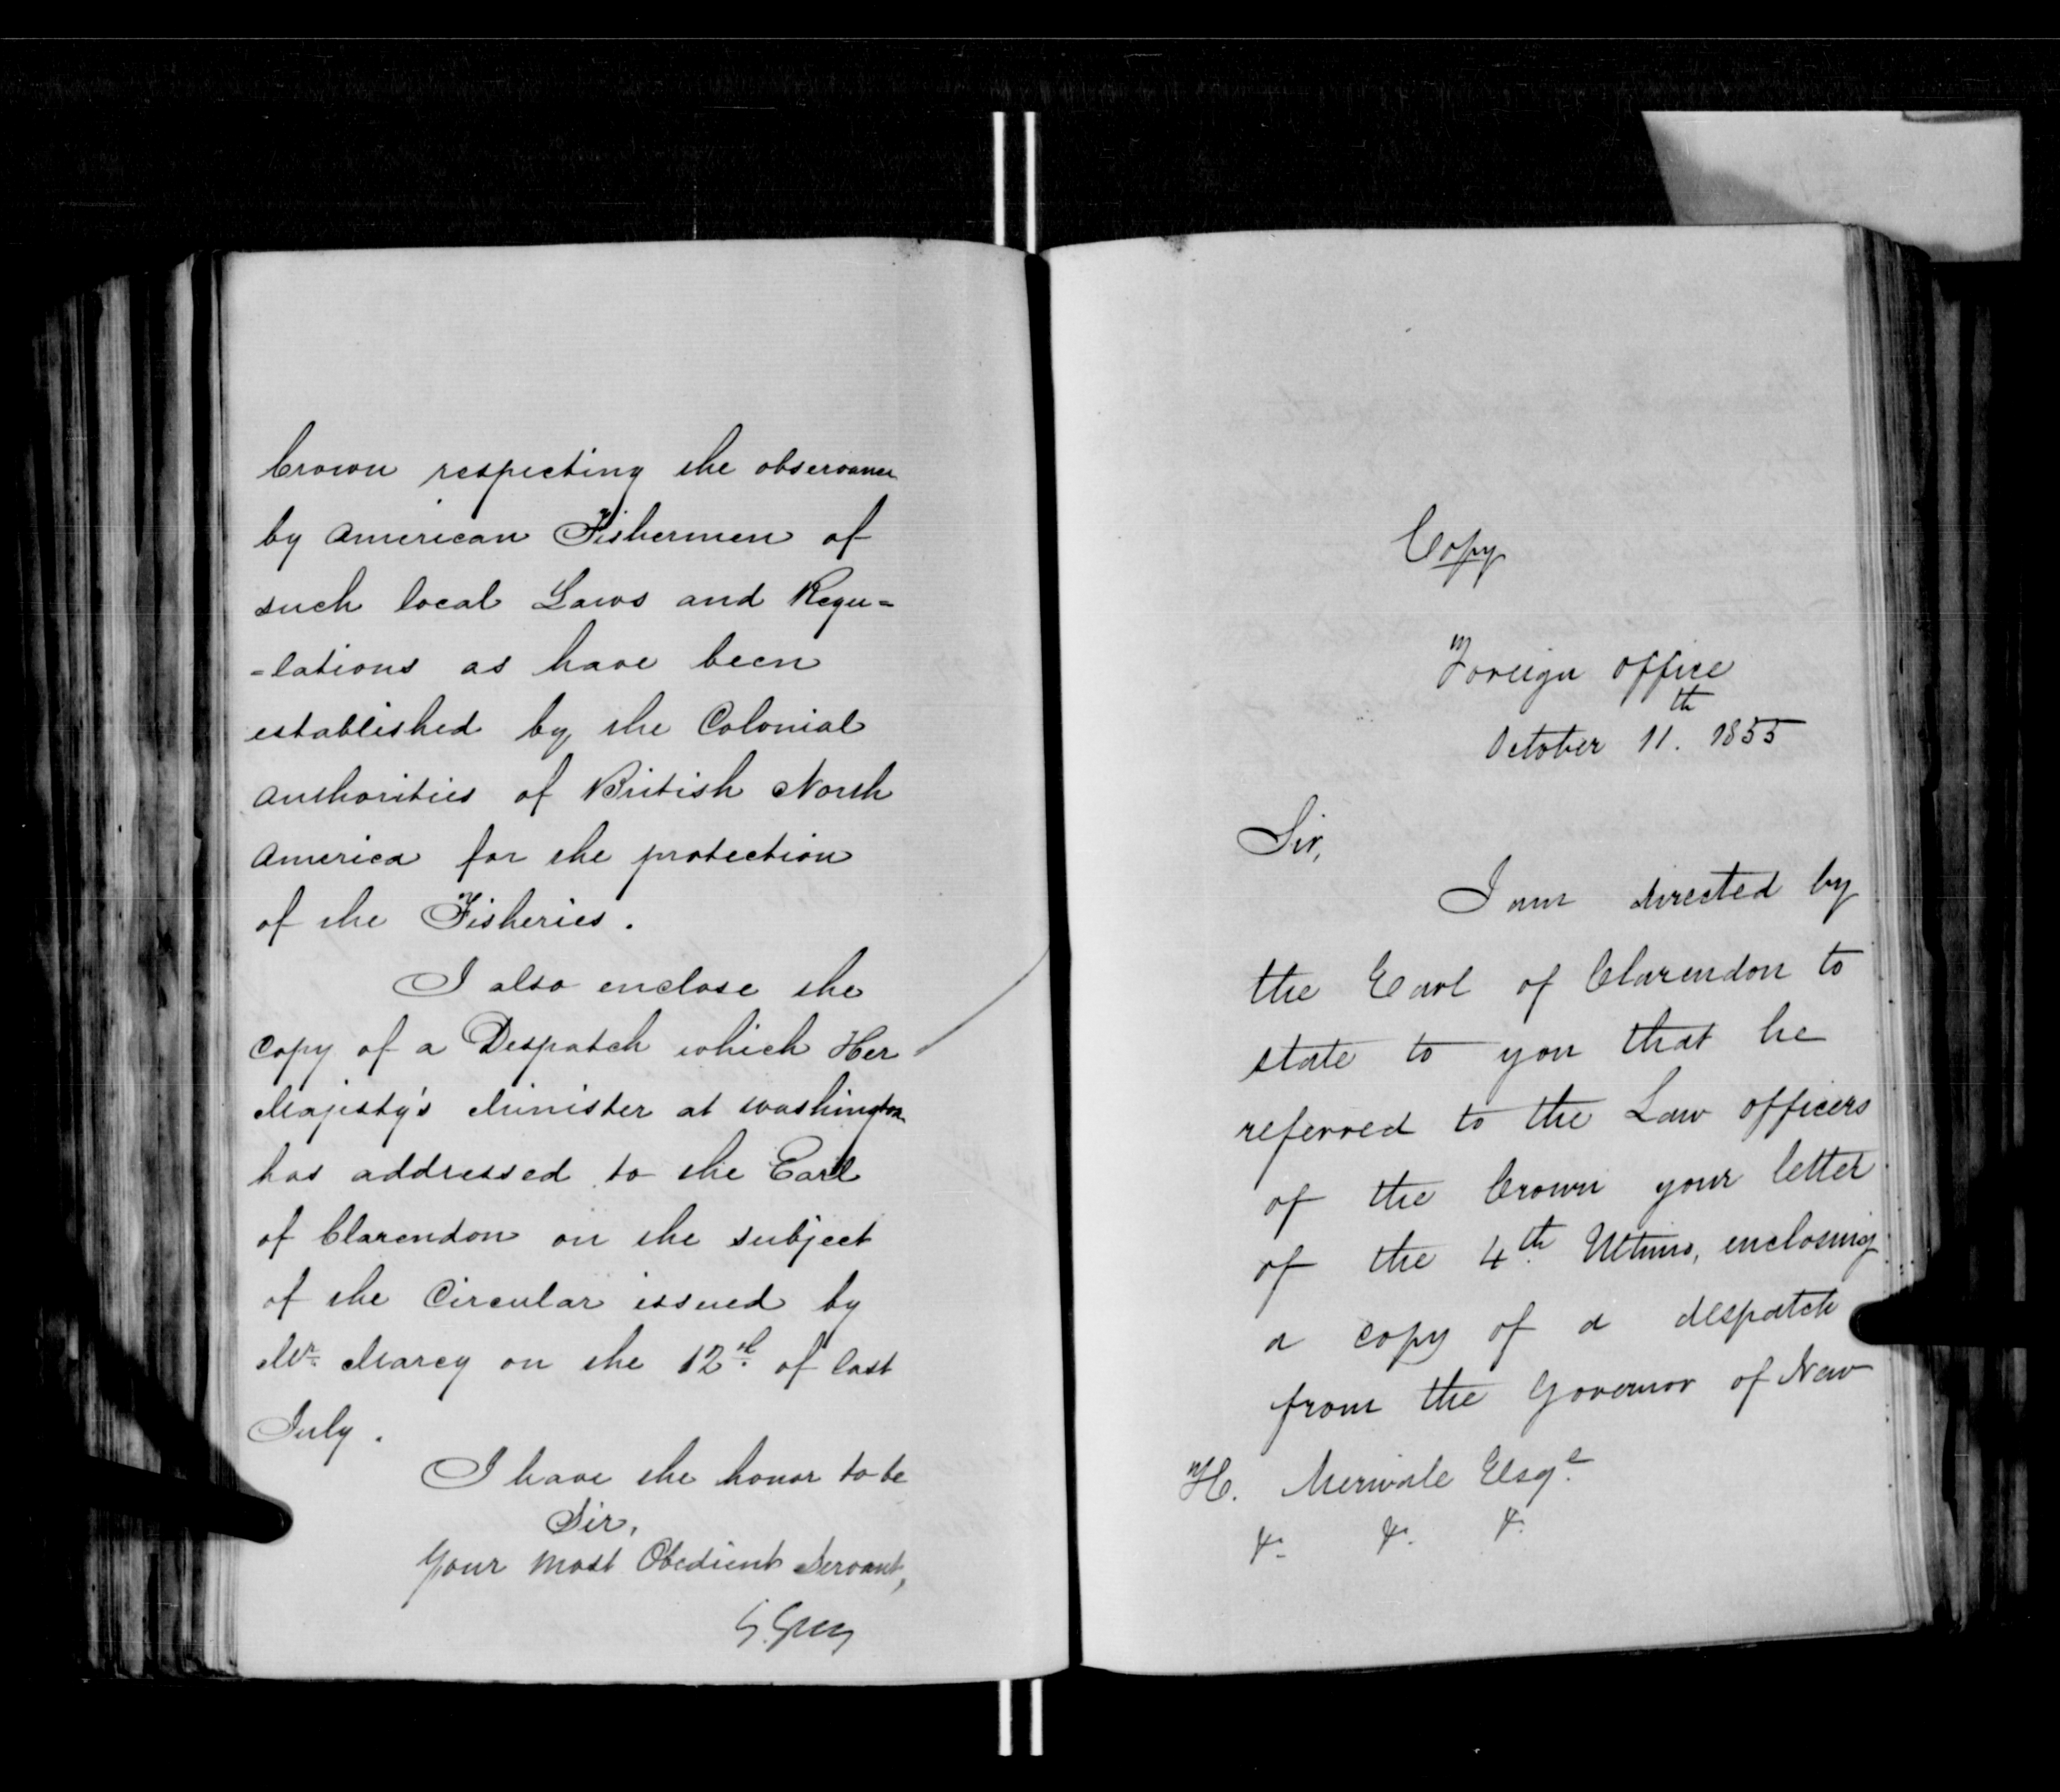 Crown respecting the observance
by American Fishermen of
such local Laws and Regu=
=lations as have been
established by the Colonial
Authorities of British North
America for the protection
of the Fisheries.
I also enclose the
Copy of a Despatch which Her
Majesty's Minister at Washington
has addressed to the Earl
of Clarendon on the subject
of the Circular issued by
Mr. Marcy on the 12th of last
July.
I have the honor to be
Sir,
Your Most Obedient Servant,
G. Grey
Copy
Foreign Office
October 11th. 1855
Sir,
I am directed by
the Earl of Clarendon to
state to you that he
referred to the Law officers
of the Crown your letter
of the 4th. Ultimo, enclosing
a copy of a despatch
from the Governor of New
H. Merivale Esqe.
&. &. &.